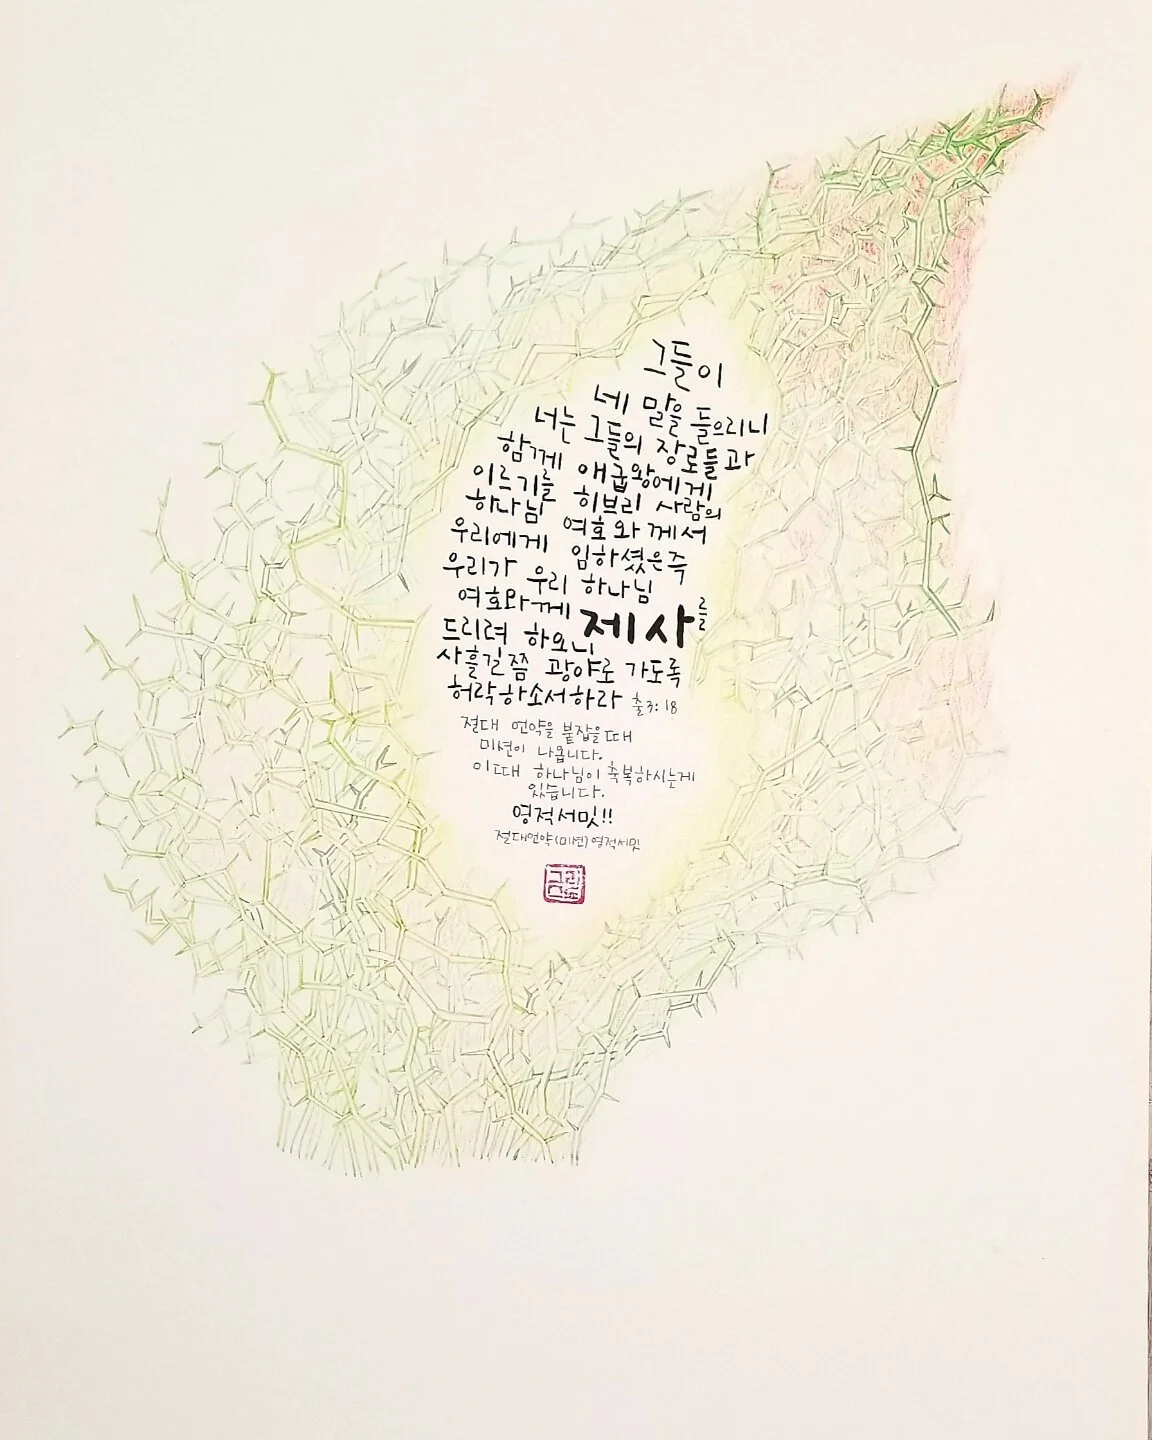 그들이
네 말을 들으리니
너는 그들의 장로들과
함께 애굽왕에게
이르기를 히브리 사람의
하나님 여호와께서
우리에게 임하셨은즉
우리가 우리 하나님
여호와께 제사를
드리려 하오니
사흘길쯤 광야로 가도록
허락하소서하라 출3:18
절대 언약을 붙잡을때
미션이 나옵니다.
이때 하나님이 축복하시는게
있습니다.
영적서밋!!
절대언약(미션)영적서밋